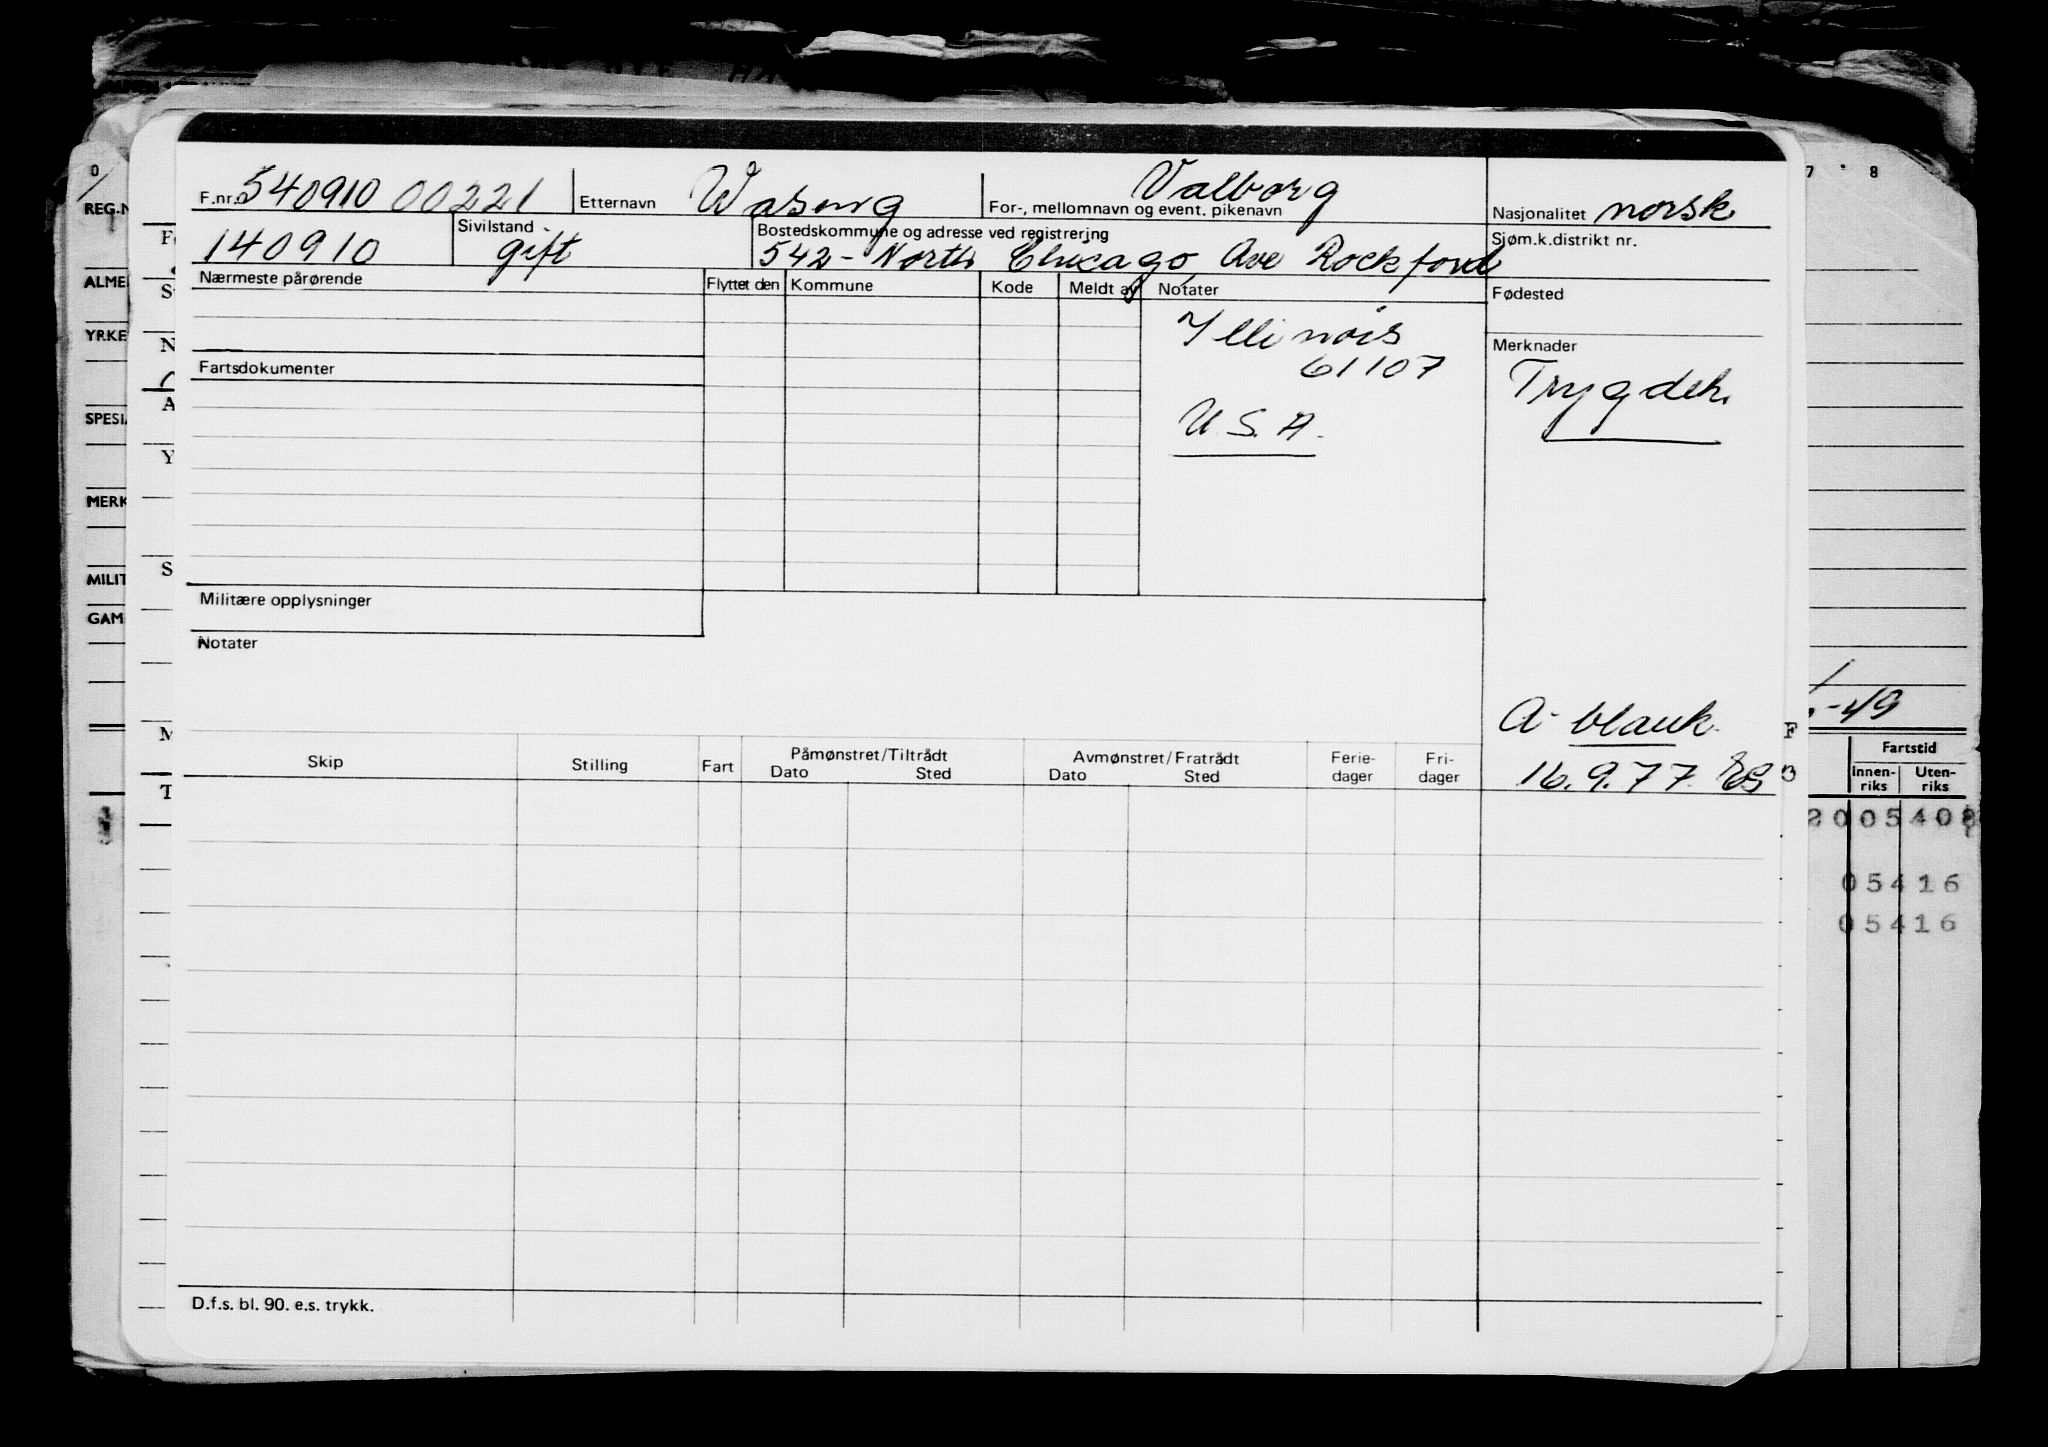 F.nr. 540910 00221 Etternavn Waberg For-, mellomnavn og event. pikenavn Valborg Nasjonalitet norsk
140910 Sivilstand gift Bostedskommune og adresse ved registrering 542 - North Chicago Ave Rockford Sjøm.k.distrikt nr.
Nærmeste pårørende Flyttet den Kommune Kode Meldt av Notater Fødested
Illinois
61107
U.S.A.
Merknader
Trygdeh.
Fartsdokumenter
Militære opplysninger
Notater
A- blank
16.9.77
Skip Stilling Fart Påmønstret/Tiltrådt Avmønstret/Fratrådt Ferie- Fri-
Dato Sted Dato Sted dager dager
D.f.s. bl. 90. e.s. trykk.
0
REG.N
ALME
YRKE
SPESI
MERK
MILIT
GAM
F
S
N
A
Y
S
M
T
7 8
-49
F
Fartstid
Innen-
riks Uten-
riks
05416
05416